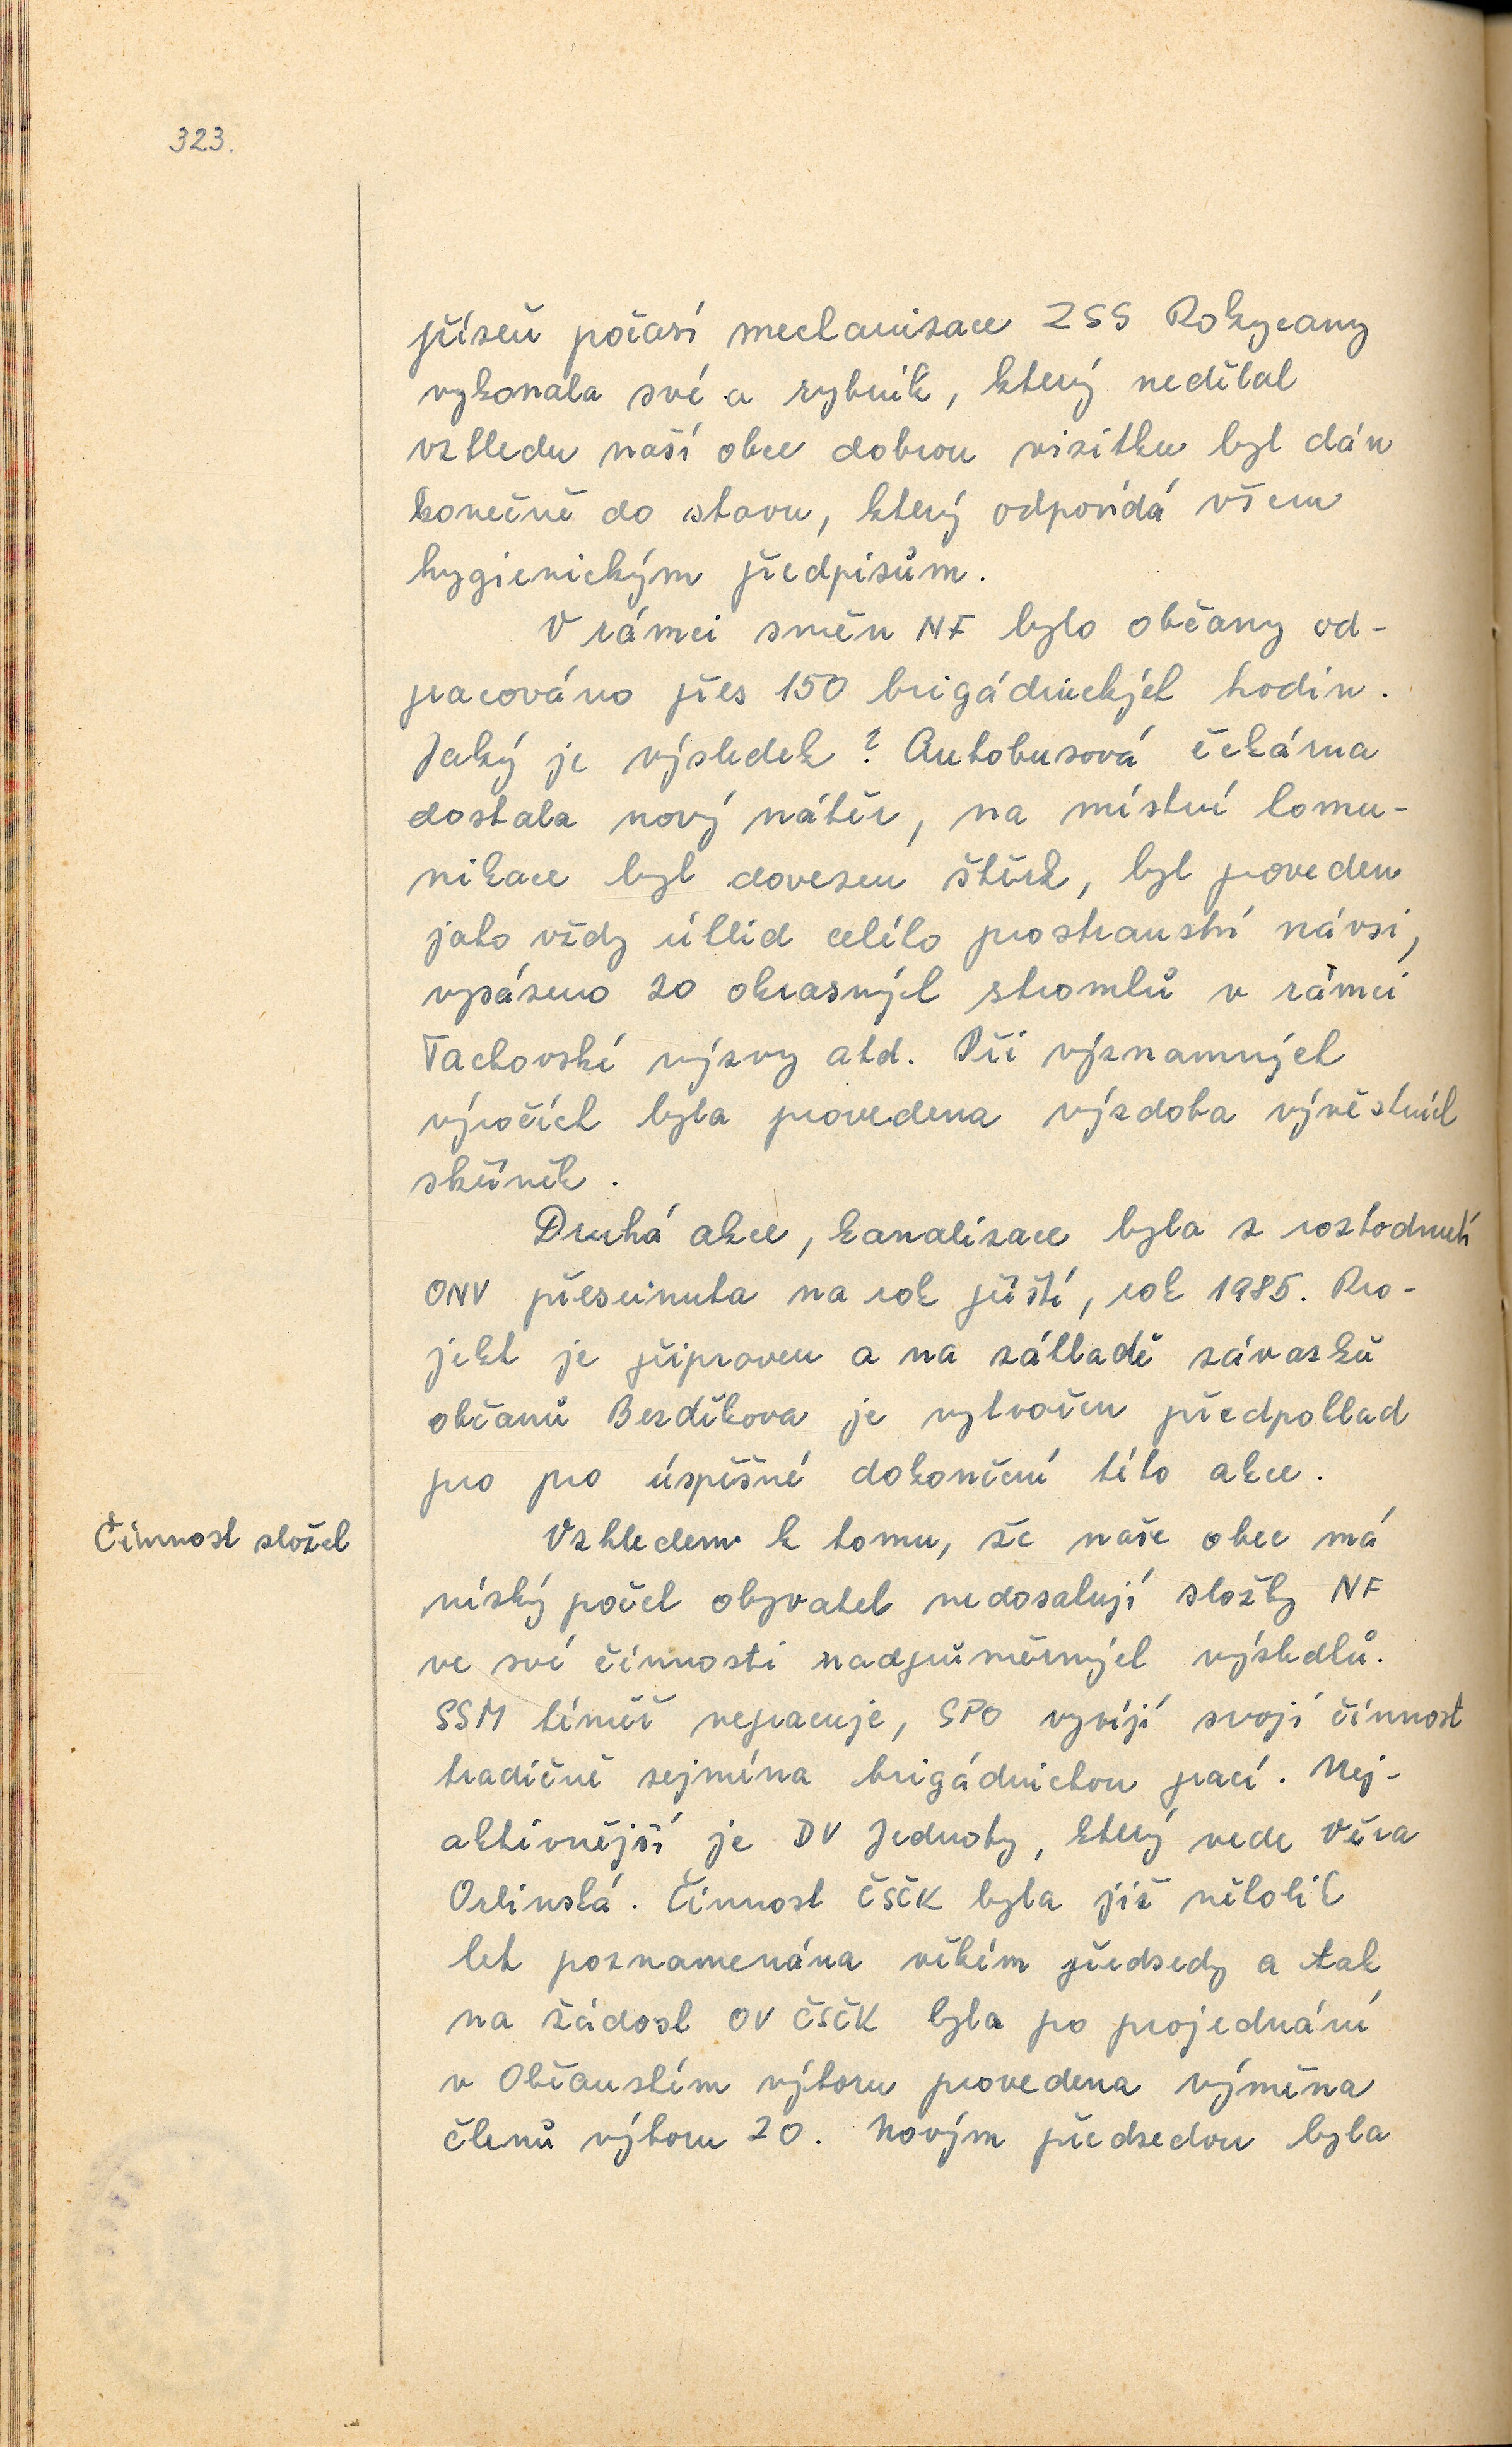 323.
přízeň počasí mechanizace ZSS Rokycany
vykonala své a rybník, který nedělal
vzhledu naší obce dobrou visitku byl dán
konečně do stavu, který odpovídá všem
hygienickým předpisům.
V rámci směn NF bylo občany od-
pracováno přes 150 brigádnických hodin.
Jaký je výsledek? Autobusová čekárna
dostala nový nátěr, na místní komu-
nikace byl dovezen štěrk, byl proveden
jako vždy úklid celého prostranství návsi,
vysázeno 20 okrasných stromků v rámci
Tachovské výzvy atd. Při významných
výročích byla provedena výzdoba vývěstních
skříněk.
Druhá akce, kanalizace byla z rozhodnutí
ONV přesunuta na rok příští, rok 1985. Pro-
jekt je připraven a na základě závazků
občanů Bezděkova je vytvořen předpoklad
pro pro úspěšné dokončení této akce.
Činnost složek
Vzhledem k tomu, že naše obec má
nízký počet obyvatel nedosahují složky NF
ve své činnosti nadprůměrných výsledků.
SSM téměř nepracuje, SPO vyvíjí svojí činnost
tradičně zejména brigádnickou prací. Nej-
aktivnější je DV Jednoty, který vede Věra
Orlinská. Činnost ČSČK byla již několik
let poznamenána věkem předsedy a tak
na žádost OV ČSČK byla po projednání
v Občanském výboru provedena výměna
členů výboru ZO. Novým předsedou byla